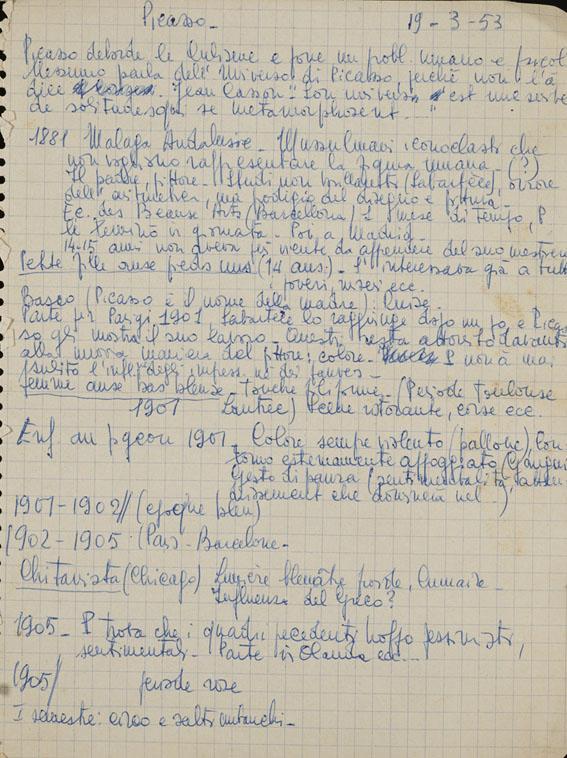 Picasso - 19 - 3 - 53
Picasso deborde le Cubisme e pone un probl. umano e psicol
Nessuno parla dell'Universo di Picasso, perchè non c'è
dice Jean Cassou "Son univers est une série
de solitudes qui se metamorphosent... "
1881 Malaga Andalousie - Mussulmani iconoclasti che
non vogliono rappresentare la figura umana - (?)
Il padre, pittore. Studi non brillanti (Sabartès),
dell'aritmetica, ma prodigio del disegno e pittura -
Ec. des Beaux Arts (Barcellona) 1 mese di tempo, P
le terminò in giornata - Poi, a Madrid -
14-15 anni non aveva più niente da apprendere dal suo mestiere
Petite fille aux pieds nus (14 ans) - S'interessava già a tutti
poveri, miseri ecc.
Basco (Picasso è il nome della madre):
Parte per Parigi 1901 Sabartès lo raggiunge dopo un po e Picas
so gli mostra il suo lavoro - Questi resta davanti
alla nuova maniera del pittore, colore - P non à mai
subito l'infl. degli impress. nè dei fauves -
femme aux bas bleus - Touche filiforme - (Periode Toulouse
1901 Lautrec) Scene ristorante, corse ecc.
Enf. au pigeon 1901 - Colore sempre violento (pallone), Con
torno estremamente appoggiato (Gauguin)
che dominerà nel ..)
1901-1902// (epoque bleu)
1902 - 1905 (Paris - Barcelone -
Chitarrista (Chicago) Lumière bleuâtre froide, lunaire -
Influenza del Greco?
1905 - P trova che i quadri precedenti troppo pessimisti,
sentimentali - Parte in Olanda ecc...
1905/ periode rose
I semestre: circo e saltimbanchi -